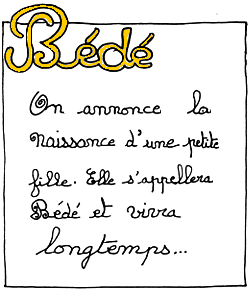 Bédé
On annonce la
naissance d'une petite
fille. Elle s'appellera
Bédé et vivra
longtemps...